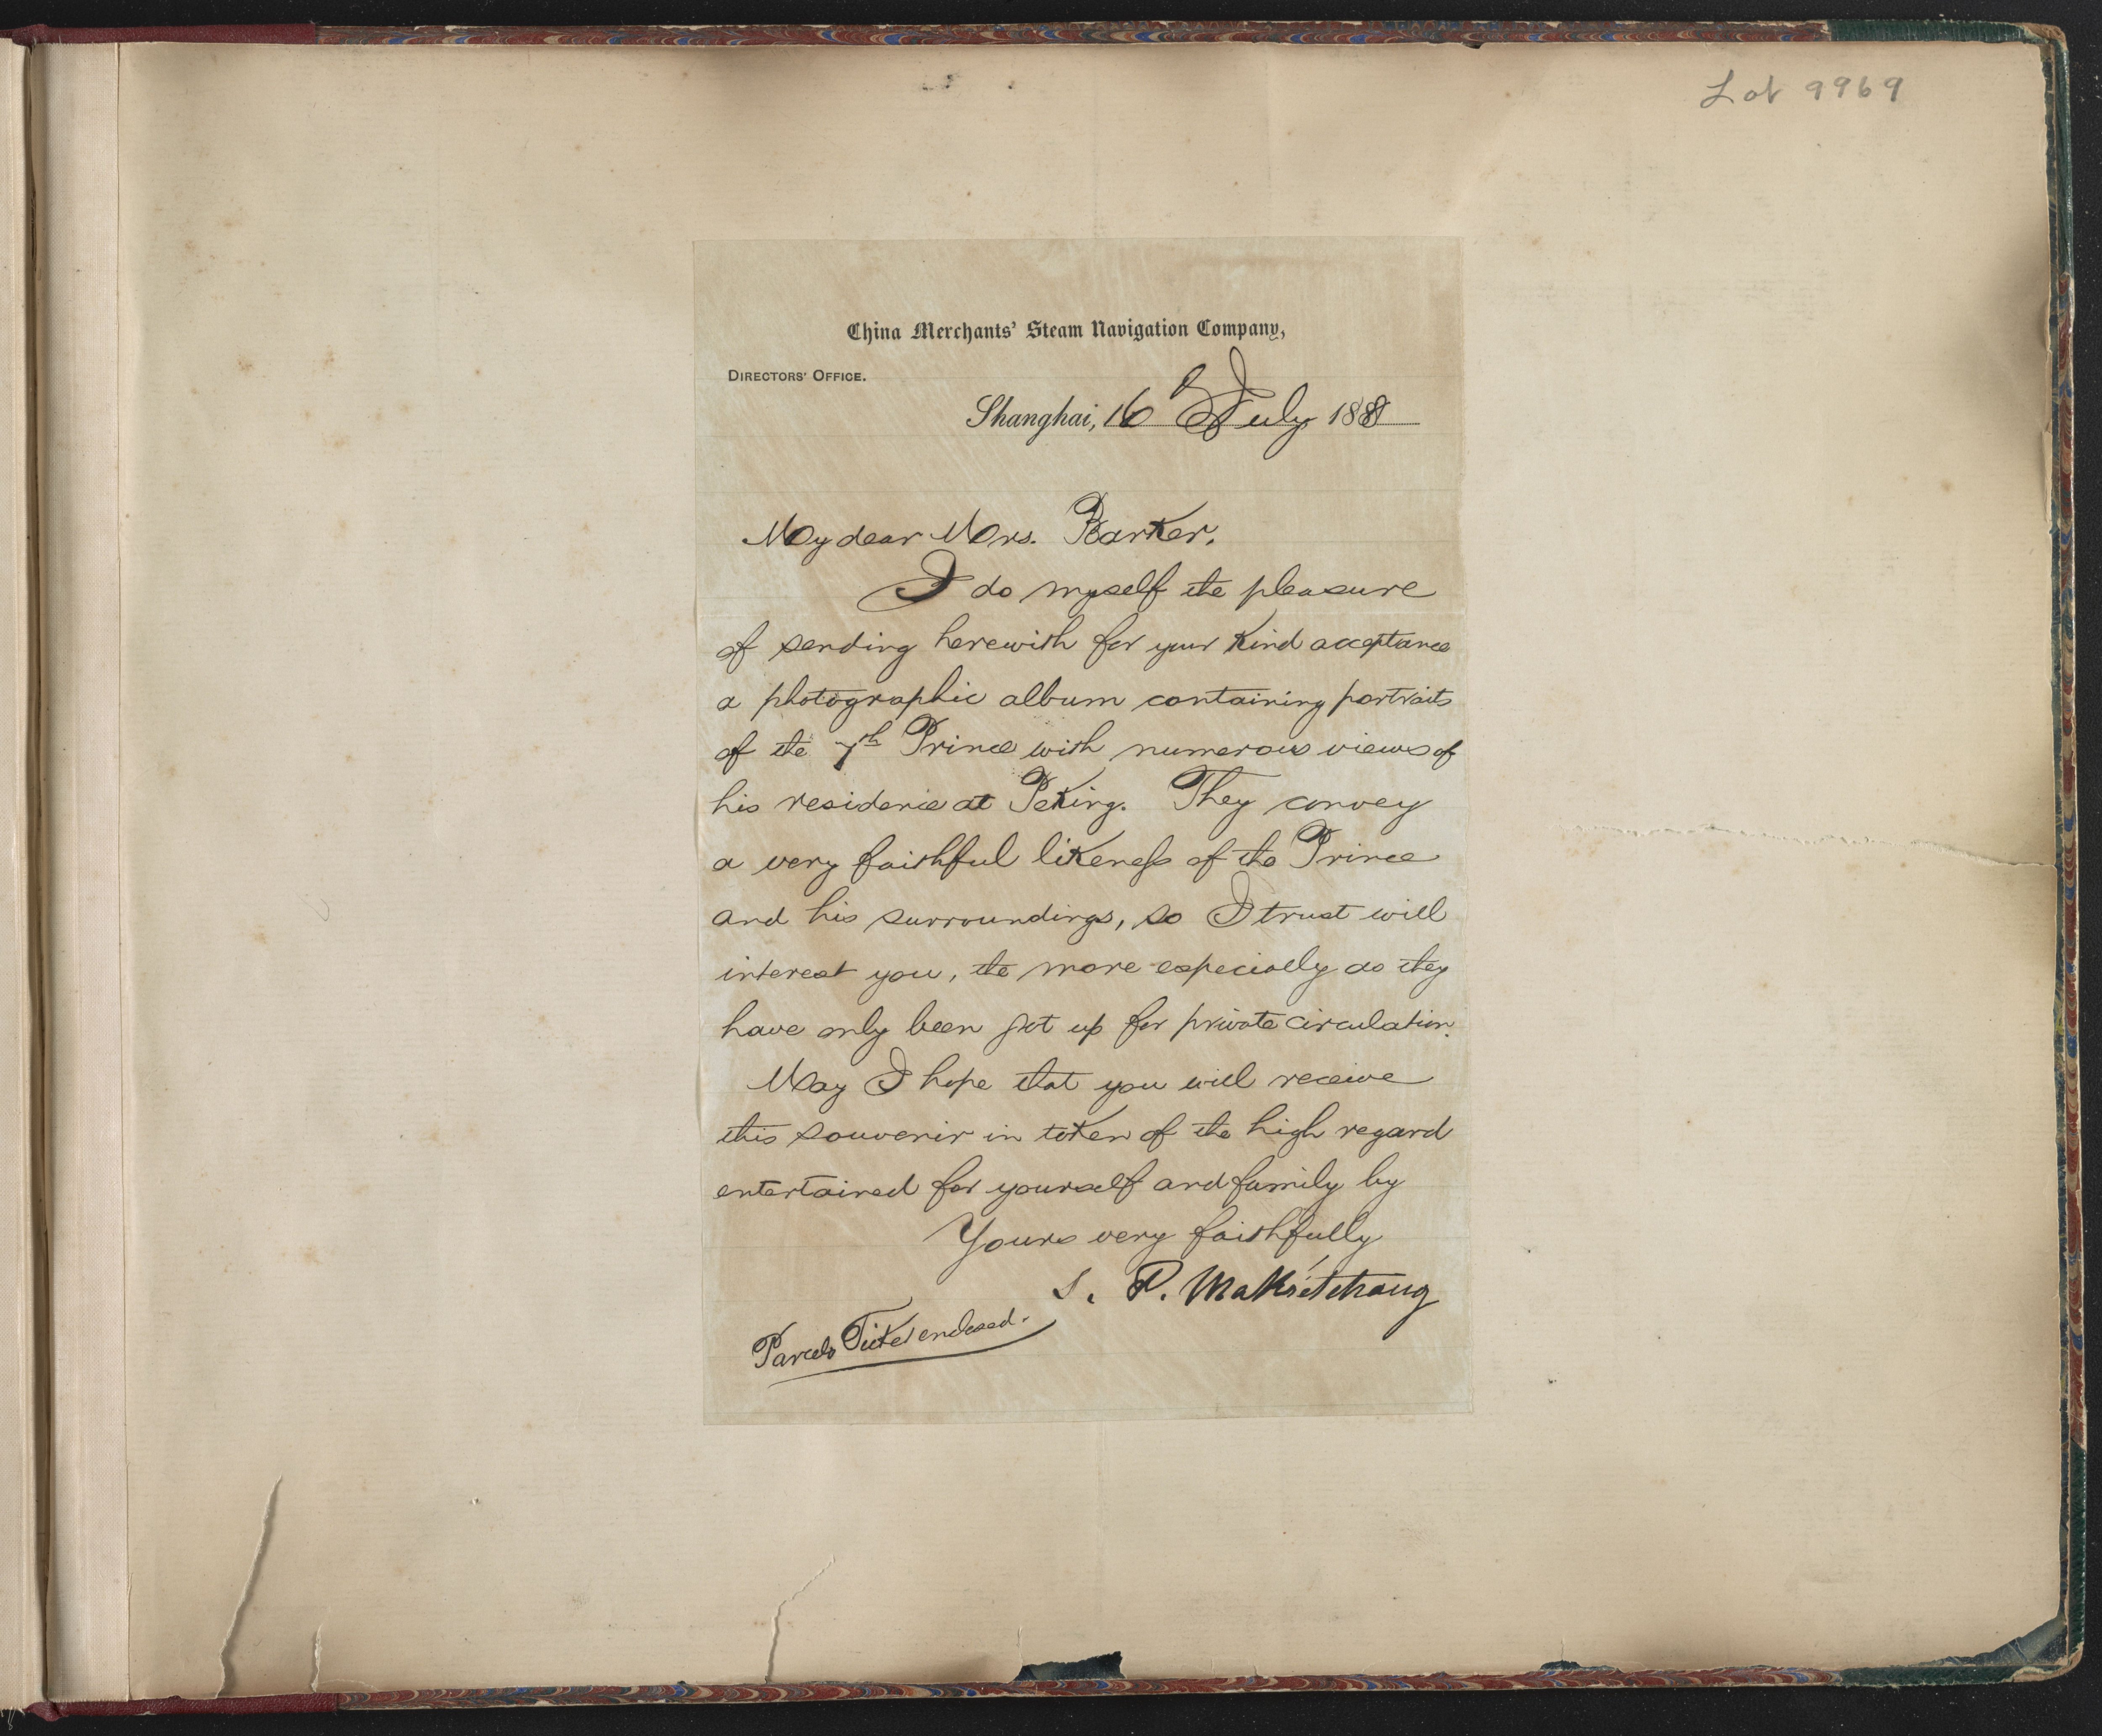 Lot 9969
China Merchants' Steam Navigation Company,
DIRECTORS' OFFICE.
Shanghai, 16th July 1888
My dear Mrs. Barker,
I do myself the pleasure
of sending herewith for your kind acceptance
a photographic album containing portraits
of the 7th Prince with numerous views of
his residence at Peking. They convey
a very faithful likeness of the Prince
and his surroundings, so I trust will
interest you, the more especially as they
have only been got up for private circulation.
May I hope that you will receive
this souvenir in token of the high regard
entertained for yourself and family by
Yours very faithfully
S. P. MaKiétchang
Parcels Ticket enclosed.